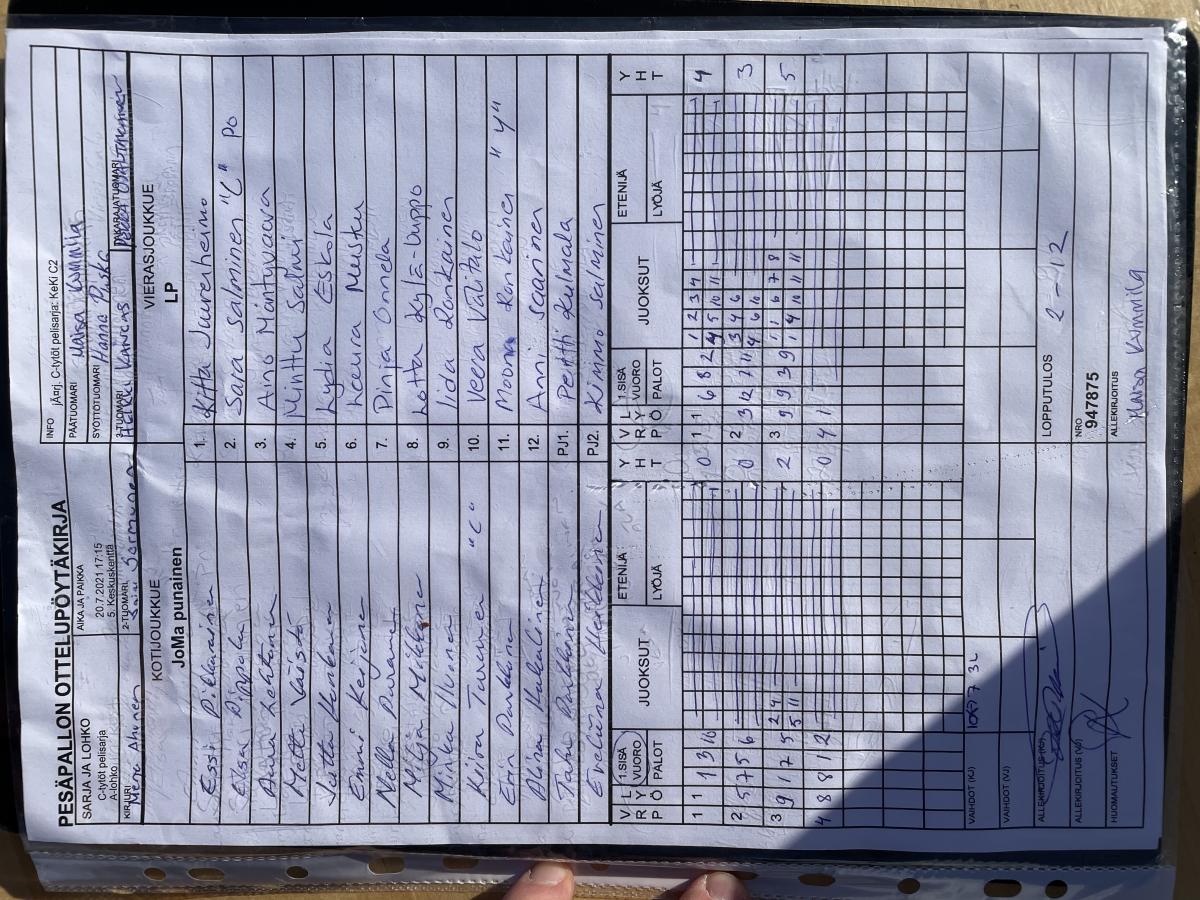 PESÄPALLON OTTELUPÖYTÄKIRJA
SARJA JA LOHKO
C-tytöt pelisarja
A-lohko
AIKA JA PAIKKA
20.7.2021 17:15
5. Keskuskenttä
INFO
jÄrj. C-tytöt pelisarja: KeKi C2
PÄÄTUOMARI Maisa Kummila
SYÖTTÖTUOMARI Hanna Pusko
KIRJURI Mera Ahonen
2-TUOMARI Sain Sormunen
3-TUOMARI Heikki Kangas
TAKARAJATUOMARI
KOTIJOUKKUE
JoMa punainen
VIERASJOUKKUE
LP
Essi Pikkarainen
1. Kitta Jaureheimo
Elsa Piipponen
2. Sara Salminen "C" PO
Anna Lehtonen
3. Aino Mäntyvaara
Mette Väistö
4. Minttu Salmi
Jutta
5. Lydia Eskola
Emmi Keijonen
6. Laura Meistu
Nella Puranen
7. Pinja Onnela
Milja Miikkune
8. Lotta Kylä-Durppo
Minka Ihonen
9. Iida Ronkainen
Kiira Turunen "C"
10. Veera Valitalo
Erin Parkkonen
11. Moona Ronkainen "4"
Alina Hakulinen
12. Anni Saarinen
Taru Parkkinen
PJ1. Pertti Kulmala
Eveliina
PJ2. Kimmo Salminen
V R P L Y Ö 1.SISÄ VUORO PALOT JUOKSUT ETENIJÄ LYÖJÄ Y H T
V R P L Y Ö 1.SISÄ VUORO PALOT JUOKSUT ETENIJÄ LYÖJÄ Y H T
1 1 1 3 10 0
1 1 6 8 2 1 2 3 4 4
4 5 10 11
2 5 7 5 6 0
2 3 12 7 11 3 4 6 3
4 6 10
3 9 1 7 5 2 4 2
5 11
3 9 9 3 9 1 1 6 7 8 5
1 4 10 11 11
4 8 8 1 2 0
4 1
VAIHDOT (KJ)
VAIHDOT (VJ)
ALLEKIRJOITUS (KJ)
LOPPUTULOS 2 - 12
ALLEKIRJOITUS (VJ)
NRO
947875
HUOMAUTUKSET
ALLEKIRJOITUS
Maisa Kummila